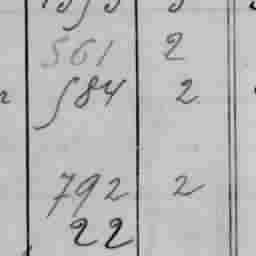 561 2
584 2
792 2
22